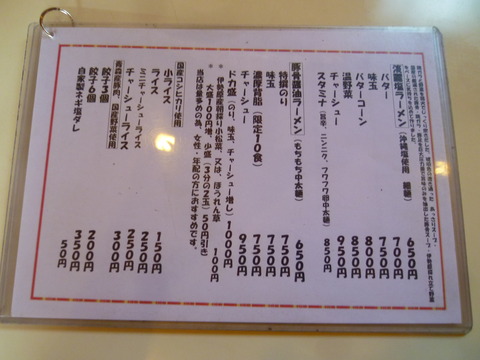 淡麗塩ラーメン(沖縄塩使用 細麺) 650円
バター 700円
味玉 750円
バターコーン 800円
温野菜 850円
チャーシュー 950円
スタミナ(豚辛、ニンニク、フワフワ卵中太麺) 850円
豚骨醤油ラーメン(もちもち中太麺) 650円
特撰のり 750円
味玉 750円
濃厚背脂(限定10食) 750円
チャーシュー 950円
ドカ盛り(のり、味玉、チャーシュー増し) 1000円
※ 伊勢原産朝採り小松菜、又は、ほうれん草 100円
※ 大盛100円増、少盛(3分の2玉)50円引き
当店は量多めの為、女性・年配の方におすすめです。
国産コシヒカリ使用
小ライス 150円
ライス 250円
ミニチャーシューライス 250円
チャーシューライス 300円
青森産豚肉、国産野菜使用
餃子3個 200円
餃子6個 350円
自家製ネギ塩ダレ 50円